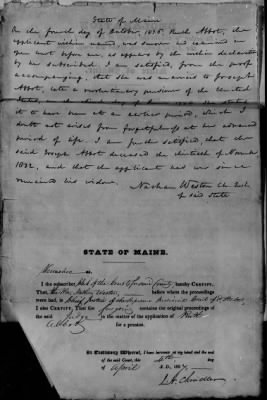 State of Maine
On the fourth day of October, 1838, Ruth Abbot, the
applicant within named, was sworn and examined on
your most upon me, as appears by the within declaration
by her subscribed. I am satisfied, from the proof
accompanying, that she was married to Joseph
Abbot, late a revolutionary pensioner of the United
States, on the day of She states
it to have been at an earlier period, which I
doubt not arises from forgetfulness at her advanced
period of life. I am further satisfied that the
said Joseph Abbot deceased the thirtieth of November
1832, and that the applicant has ever since
remained his widow.
Nathan Weston Ch. Just.
of said State
STATE OF MAINE.
Kennebec ss.
I the subscriber Clerk of the Court of said County hereby CERTIFY,
That Nathan Weston before whom the proceedings
were had, is Chief Justice of the Supreme Judicial Court of the State,
That the foregoing contains the original proceedings of
the said Judge in the matter of the application of Ruth
Abbot for a pension.
In Testimony Whereof, I have hereunto set my hand and the seal
of the said Court, this day
of April A. D.